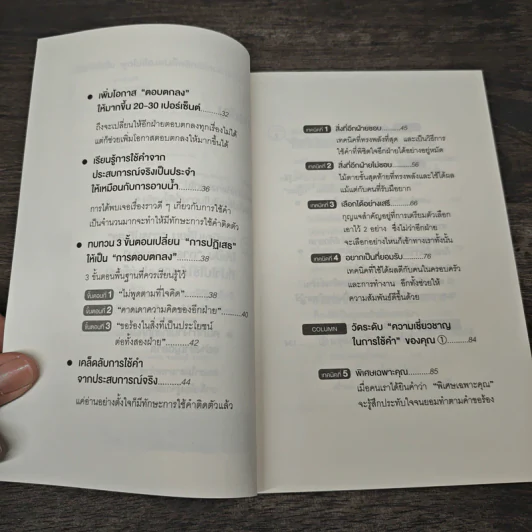 เพิ่มโอกาส “ตอบตกลง”
ให้มากขึ้น 20-30 เปอร์เซ็นต์..........32
ถึงจะเปลี่ยนให้อีกฝ่ายตอบตกลงทุกเรื่องไม่ได้
แต่ก็ช่วยเพิ่มโอกาสตอบตกลงให้มากขึ้นได้
เรียนรู้การใช้คำจาก
ประสบการณ์จริงเป็นประจำ
ให้เหมือนกับการอาบน้ำ..........36
การได้พบเจอเรื่องราวดี ๆ เกี่ยวกับการใช้คำ
เป็นจำนวนมากจะทำให้มีทักษะการใช้คำติดตัว
ทบทวน 3 ขั้นตอนเปลี่ยน “การปฏิเสธ”
ให้เป็น “การตอบตกลง”..........38
3 ขั้นตอนพื้นฐานที่ควรเรียนรู้ไว้
ขั้นตอนที่ 1 “ไม่พูดตามที่ใจคิด”..........38
ขั้นตอนที่ 2 “คาดเดาความคิดของอีกฝ่าย”..........40
ขั้นตอนที่ 3 “ขอร้องในสิ่งที่เป็นประโยชน์
ต่อทั้งสองฝ่าย”..........42
เคล็ดลับการใช้คำ
จากประสบการณ์จริง..........44
แค่อ่านอย่างตั้งใจก็มีทักษะการใช้คำติดตัวแล้ว
เทคนิคที่ 1 สิ่งที่อีกฝ่ายชอบ..........45
เทคนิคที่ทรงพลังที่สุด และเป็นวิธีการ
ใช้คำที่พิชิตใจอีกฝ่ายได้อย่างอยู่หมัด
เทคนิคที่ 2 สิ่งที่อีกฝ่ายไม่ชอบ..........56
ไม้ตายขั้นสุดท้ายที่ทรงพลังและใช้ได้ผล
แม้แต่กับคนที่รับมือยาก
เทคนิคที่ 3 เลือกได้อย่างเสรี..........66
กุญแจสำคัญอยู่ที่การเตรียมตัวเลือก
เอาไว้ 2 อย่าง ซึ่งไม่ว่าอีกฝ่าย
จะเลือกอย่างไหนก็เข้าทางเราทั้งนั้น
เทคนิคที่ 4 อยากเป็นที่ยอมรับ..........76
เทคนิคที่ใช้ได้ผลดีกับคนในครอบครัว
และการทำงาน อีกทั้งช่วยให้
ความสัมพันธ์ดีขึ้นด้วย
COLUMN วัดระดับ “ความเชี่ยวชาญ
ในการใช้คำ” ของคุณ ①..........84
เทคนิคที่ 5 พิเศษเฉพาะคุณ..........85
เมื่อคนเราได้ยินคำว่า “พิเศษเฉพาะคุณ”
จะรู้สึกประทับใจจนยอมทำตามคำขอร้อง